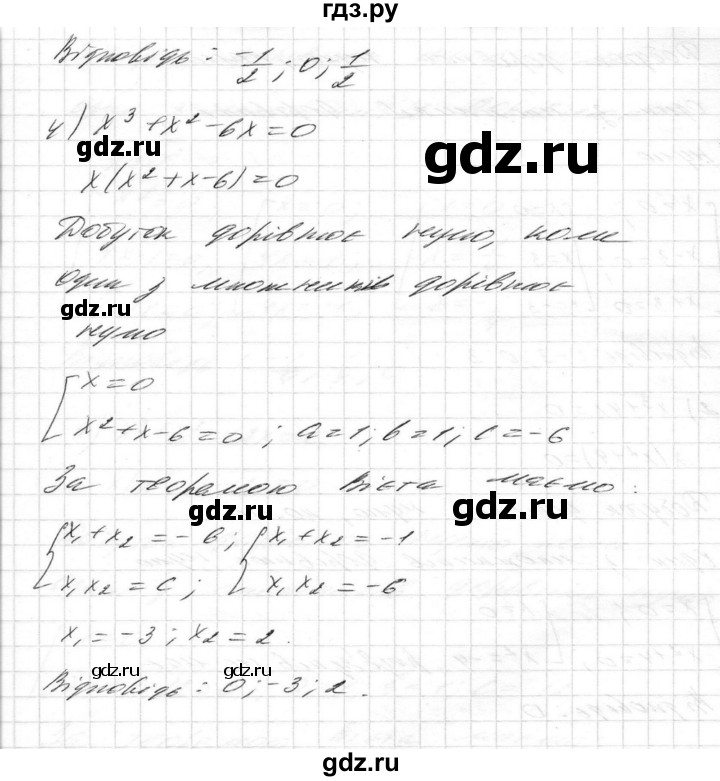 гдз.ру
Відповідь: -1/2; 0; 1/2
4) x³ + x² - 6x = 0
gdz.ru
gdz.ru
x(x² + x - 6) = 0
Добуток дорівнює нулю, коли
один з множників дорівнює
gdz.ru
нулю
[x = 0
x² + x - 6 = 0; a = 1; b = 1; c = -6
За теоремою Вієта маємо:
gdz.ru
gdz.ru
{x₁ + x₂ = -b; {x₁ + x₂ = -1
x₁x₂ = c; x₁x₂ = -6
x₁ = -3; x₂ = 2.
gdz.ru
gdz.ru
Відповідь: 0; -3; 2.
gdz.ru